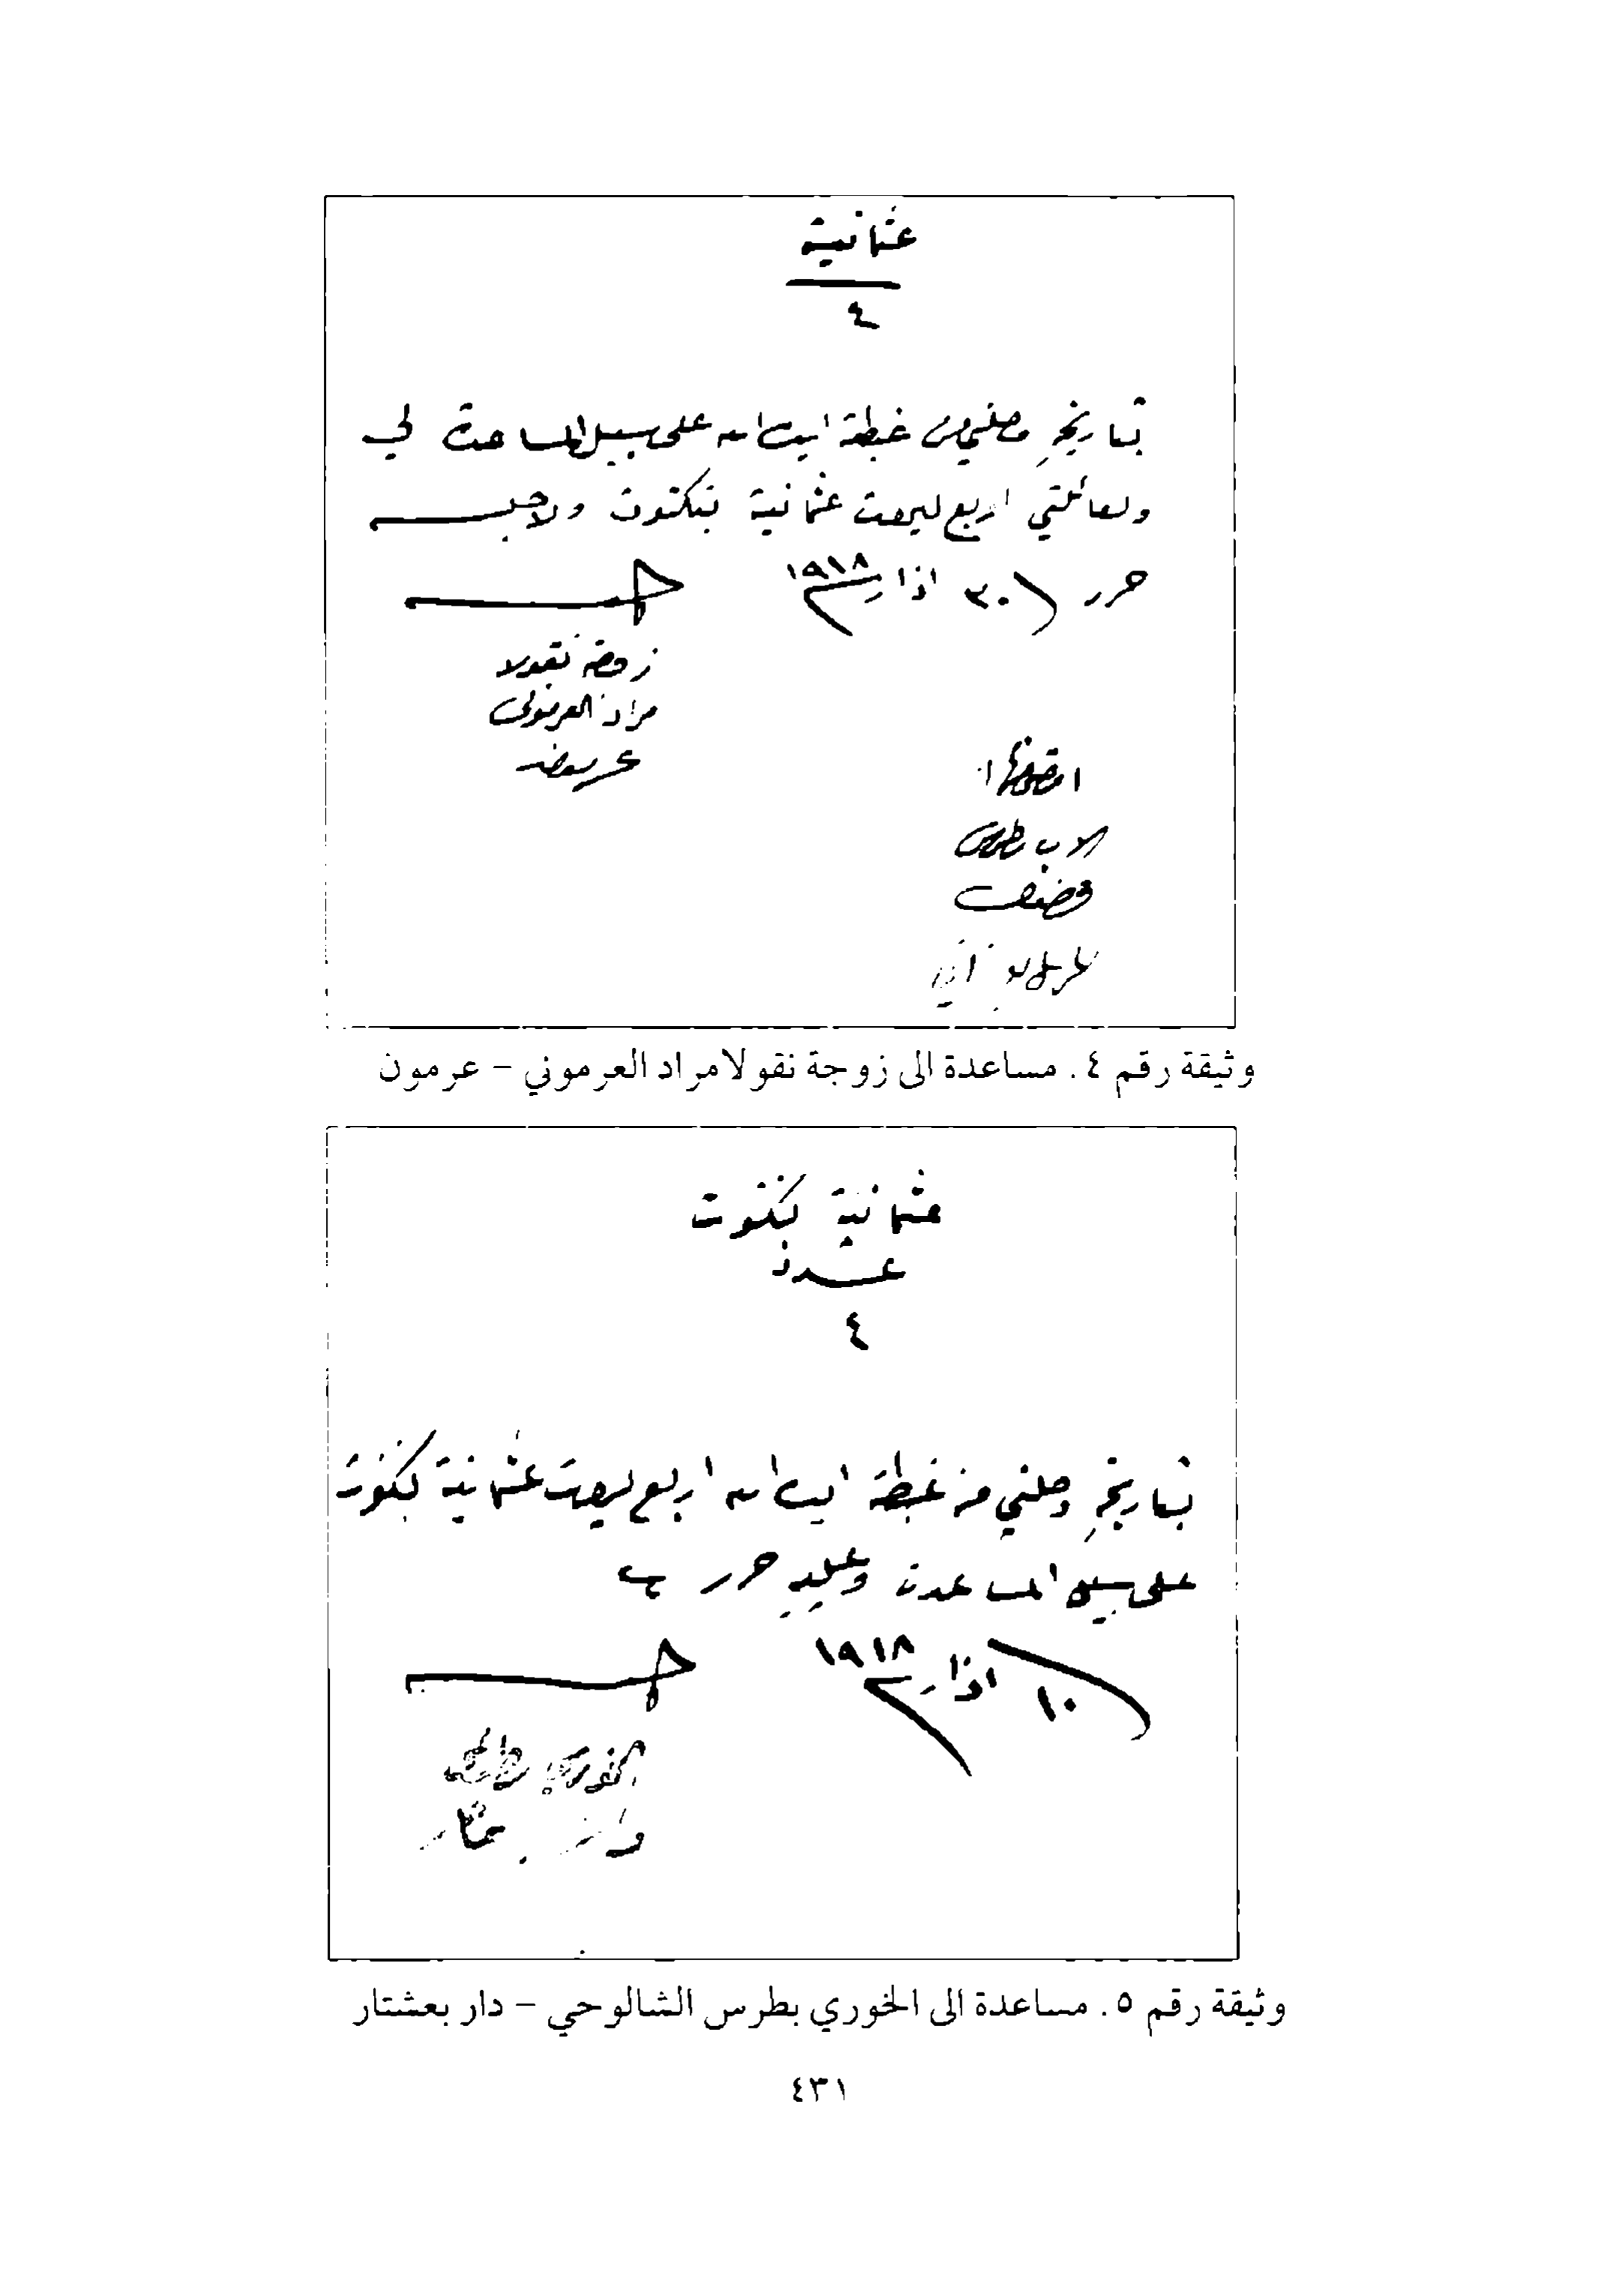 عثمانية
٤
بتاريخه وصلني من غبطة ايده الله على سبيل المساعدة لي
ولعائلتي اربع ليرات عثمانية بنكنوت ولاجله
حرر ٣٠ اذار ١٩١٨
زوجة نقولا
مراد العرموني
الاب بطرس
وثيقة رقم ٤. مساعدة الى زوجة نقولا مراد العرموني - عرمون
عثمانية بنكنوت
عدد
٤
بتاريخه وصلني من غبطة ايده الله اربع ليرات عثمانية بنكنوت
على سبيل المساعدة وعليه حرر في
١٠ اذار ١٩١٨
الخوري
وثيقة رقم ٥. مساعدة الى الخوري بطرس الشالوحي - دار بعشتار
٤٣١